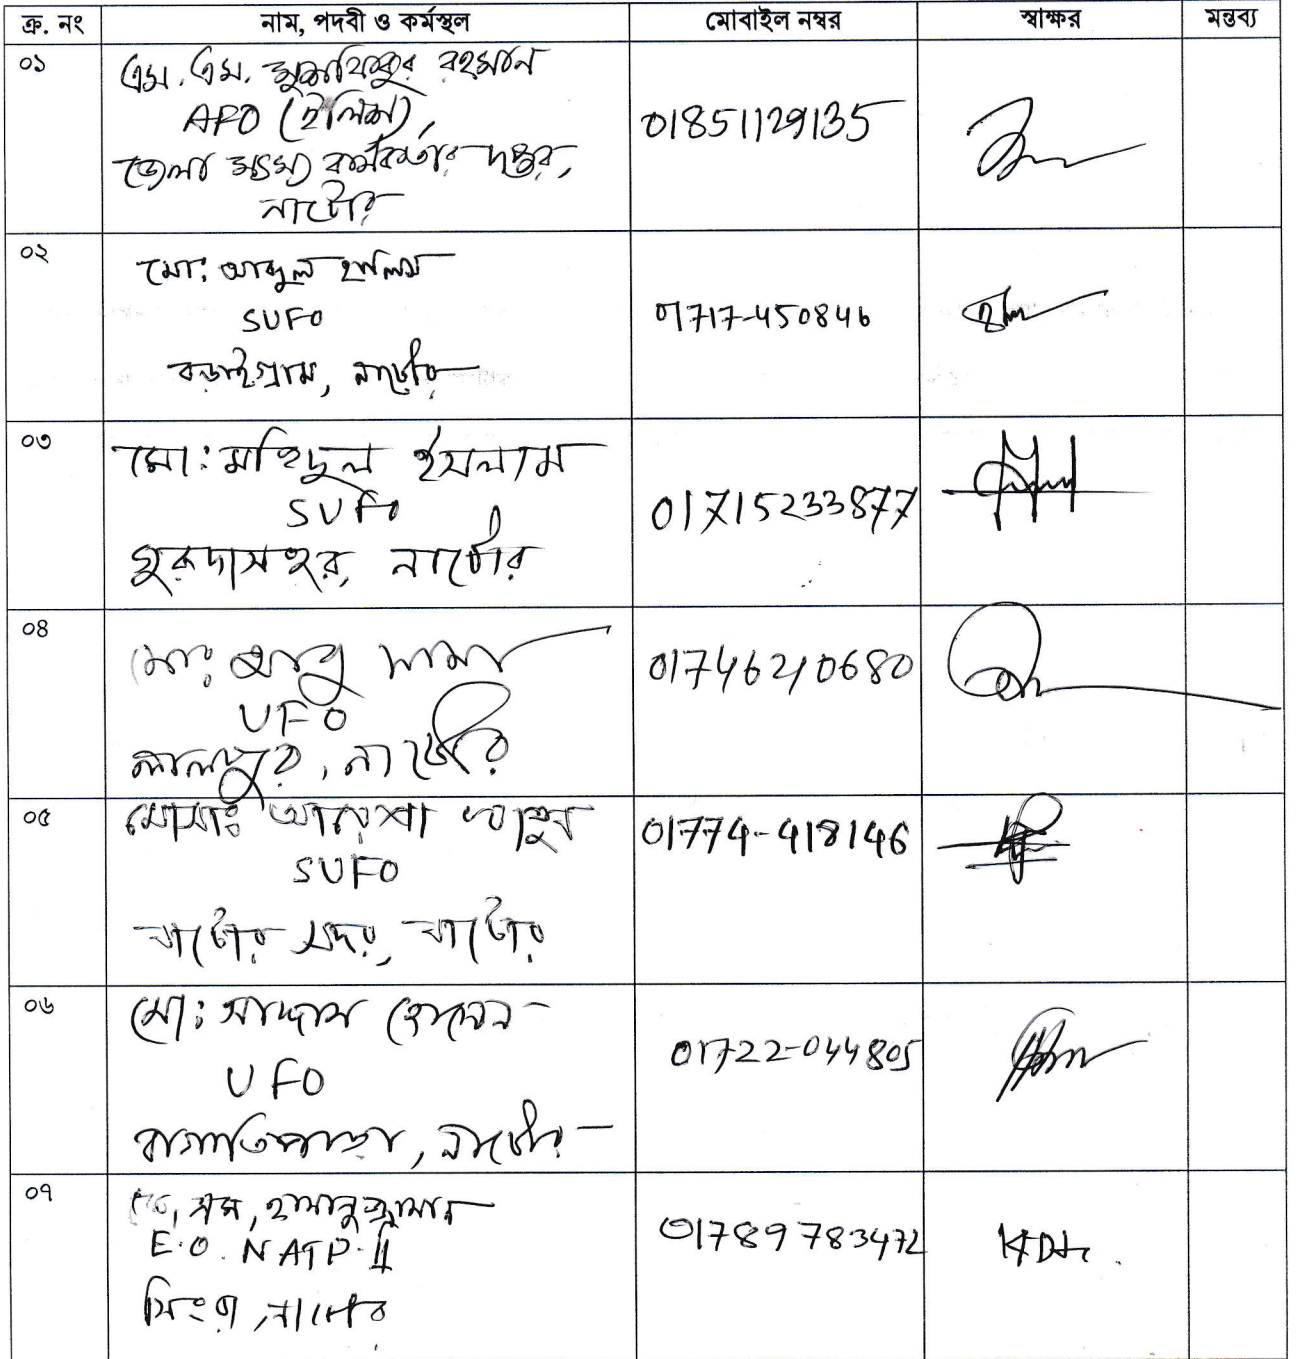 ক্র. নং নাম, পদবী ও কর্মস্থল মোবাইল নম্বর স্বাক্ষর মন্তব্য
০১ এম. এম. রহমান
APO (ইলিশ),
জেলা মৎস্য কর্মকর্তার দপ্তর,
নাটোর
01851129135
০২ মো: আব্দুল হালিম
SUFO
বড়াইগ্রাম, নাটোর
01717-450846
০৩ মো: মহিদুল ইসলাম
SUFO
গুরুদাসপুর, নাটোর
01715233877
০৪ মোঃ আবু সামা
UFO
লালপুর, নাটোর
01746210680
০৫ মোসাঃ আয়েশা খাতুন
SUFO
নাটোর সদর, নাটোর
01774-418146
০৬ মো: সাদ্দাম হোসেন
UFO
বাগাতিপাড়া, নাটোর
01722-044805
০৭ এম, হাসানুজ্জামান
E.O. NATP-II
সিংড়া, নাটোর
01789783472